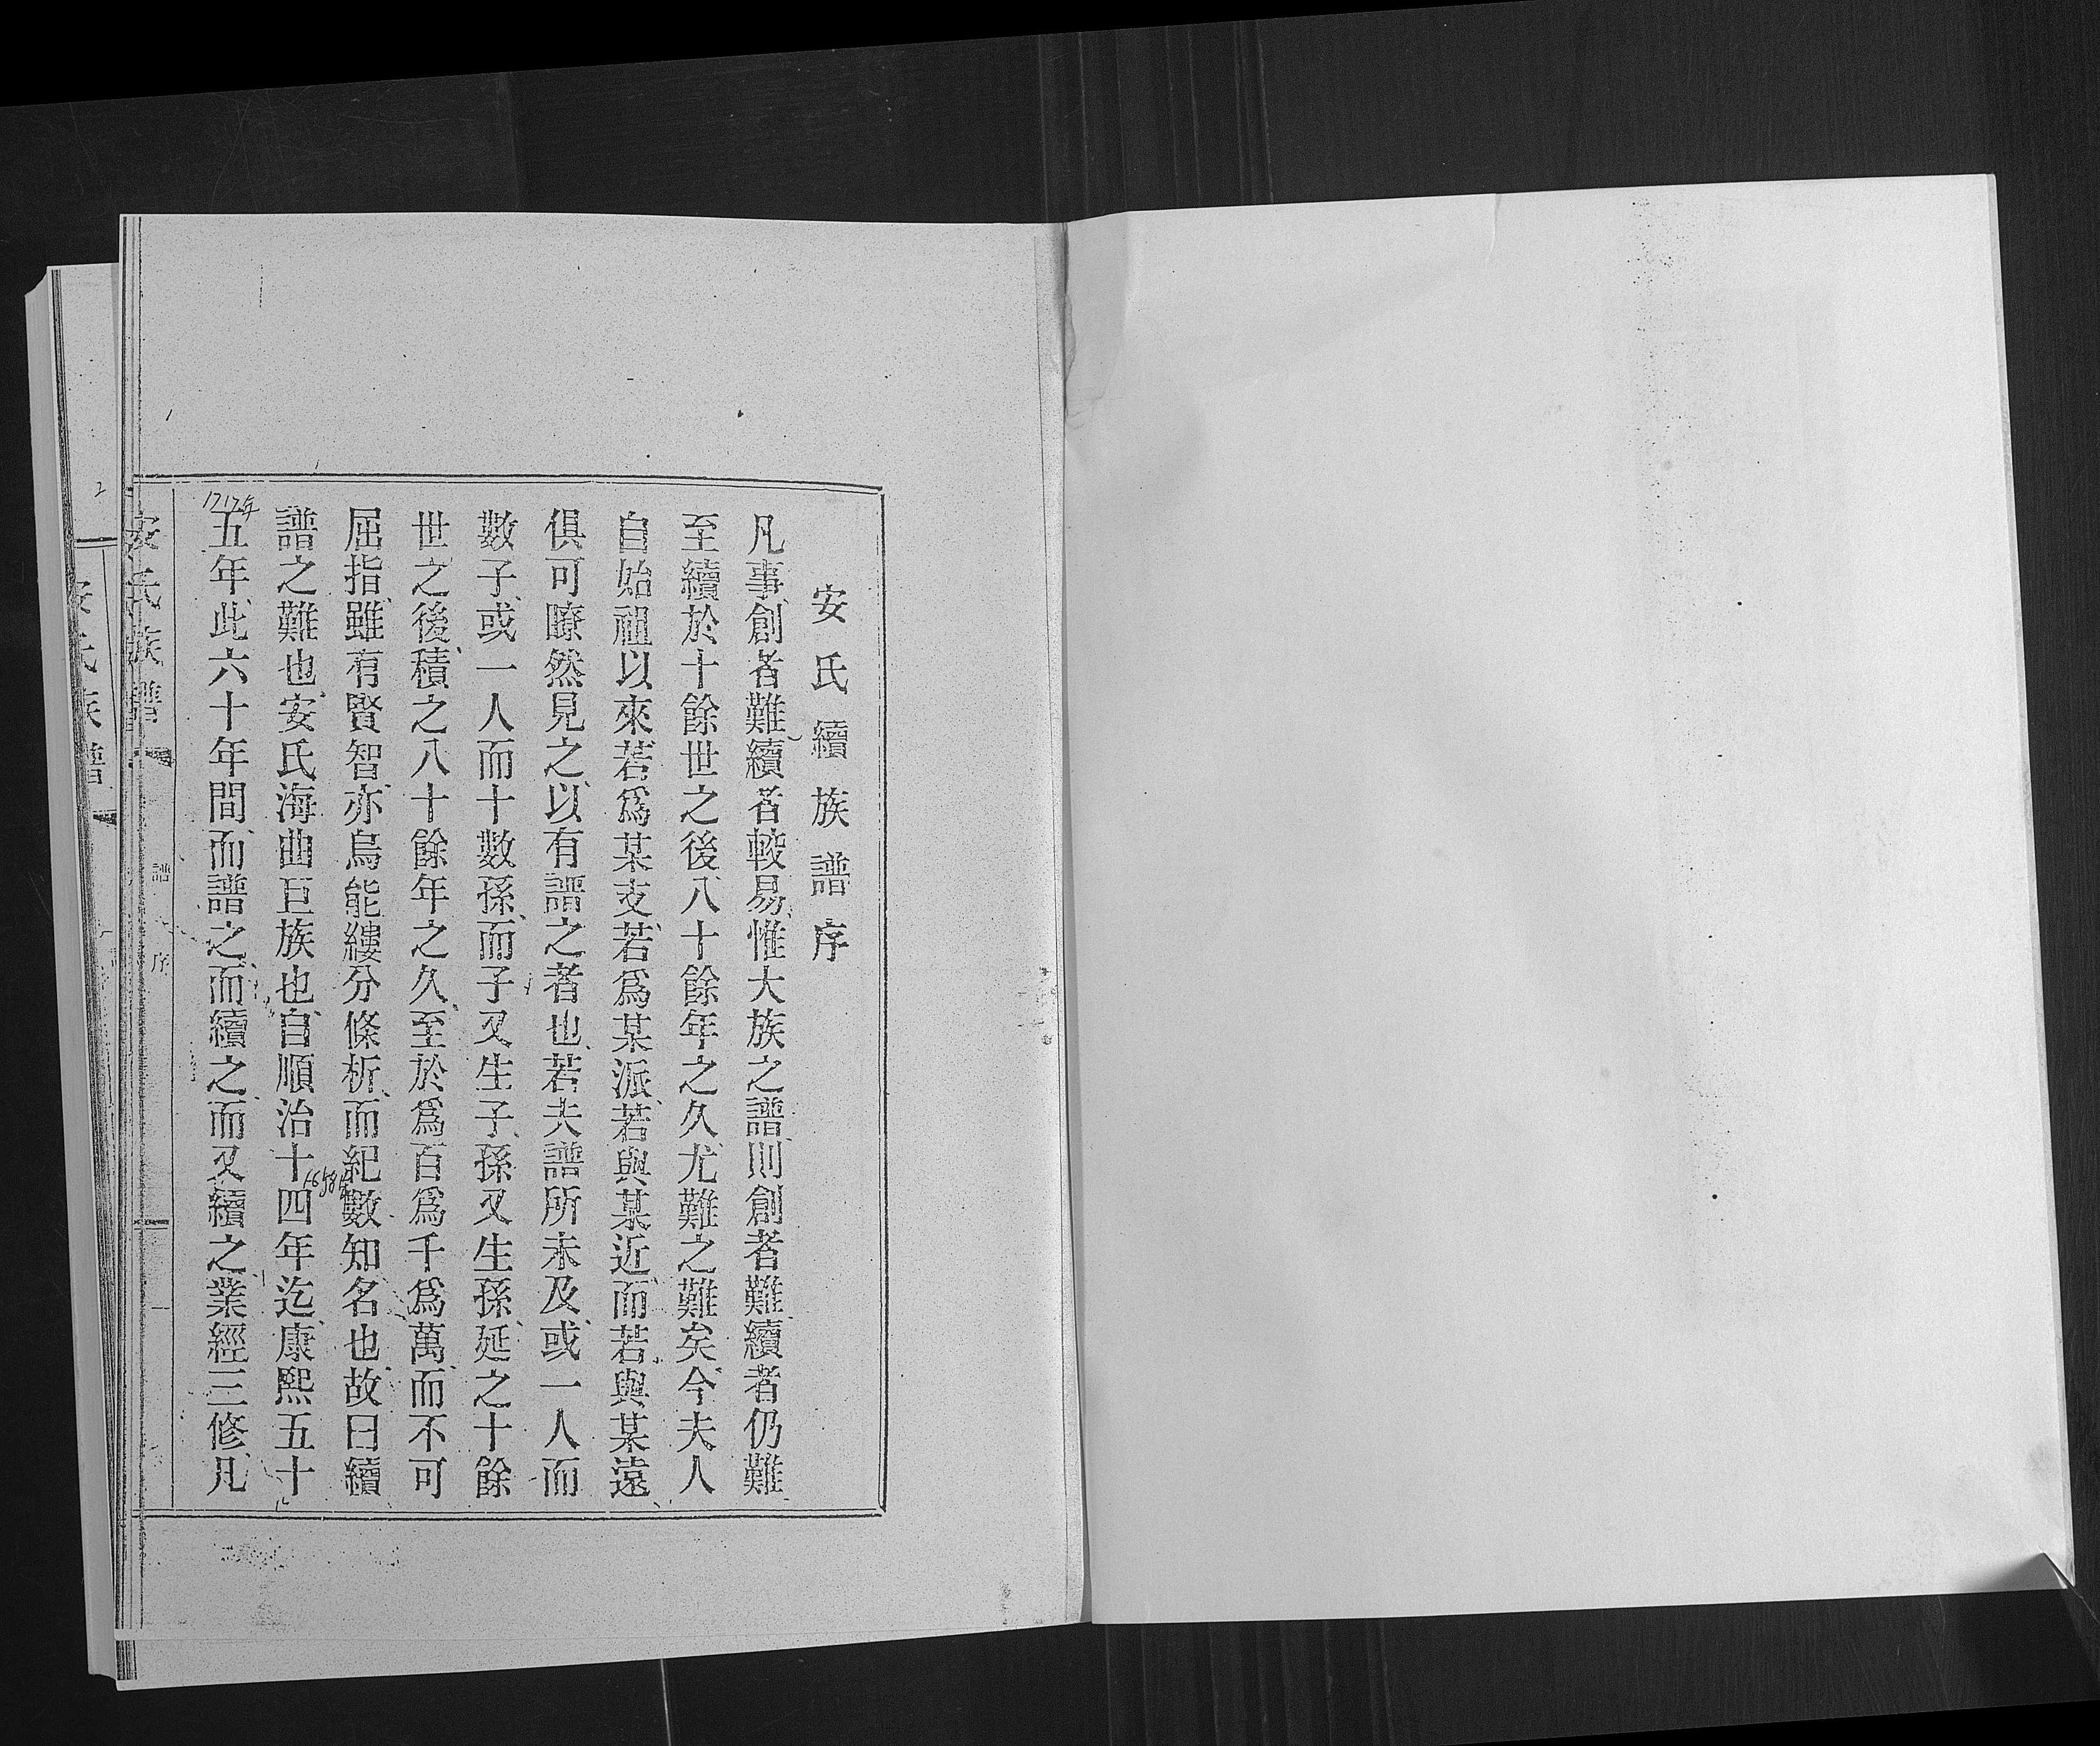 安氏續族譜序
凡事創者難續者較易惟大族之譜則創者難續者仍難
至續於十餘世之後八十餘年之久尤難之難矣今夫人
自始祖以來若爲某支若爲某派若與某近而若與某遠
俱可瞭然見之以有譜之者也若夫譜所未及或一人而
數子或一人而十數孫而子又生子孫又生孫延之十餘
世之後積之八十餘年之久至於爲百爲千爲萬而不可
屈指雖有賢智亦烏能縷分條析而紀數知名也故曰續
譜之難也安氏海曲巨族也自順治十四年迄康熙五十
1658年
五年此六十年間而譜之而續之而又續之業經三修凡
1717年
安氏族譜
譜序
一
2
安氏族譜